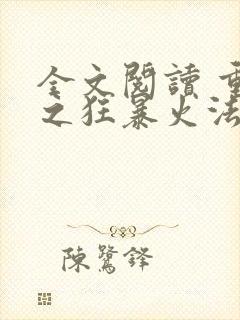 全文閱讀 重
之狂暴火法
陳鷺鋒